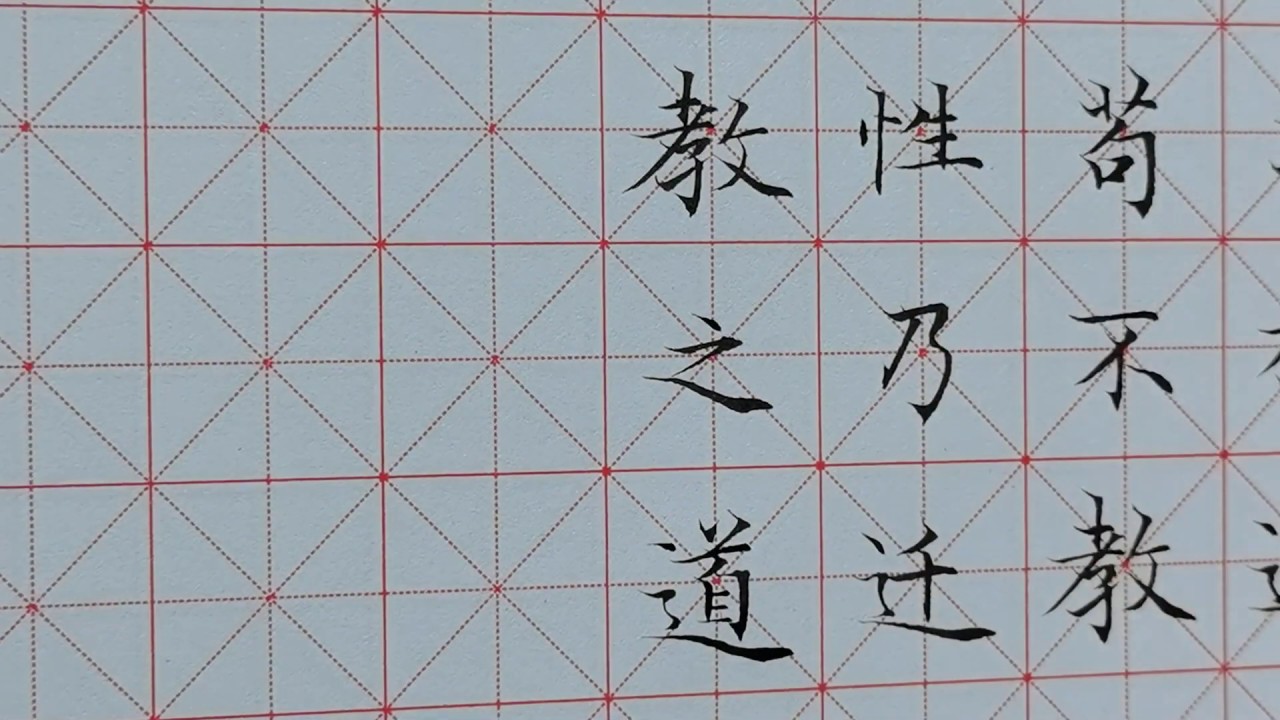 苟不教
性乃迁
教之道